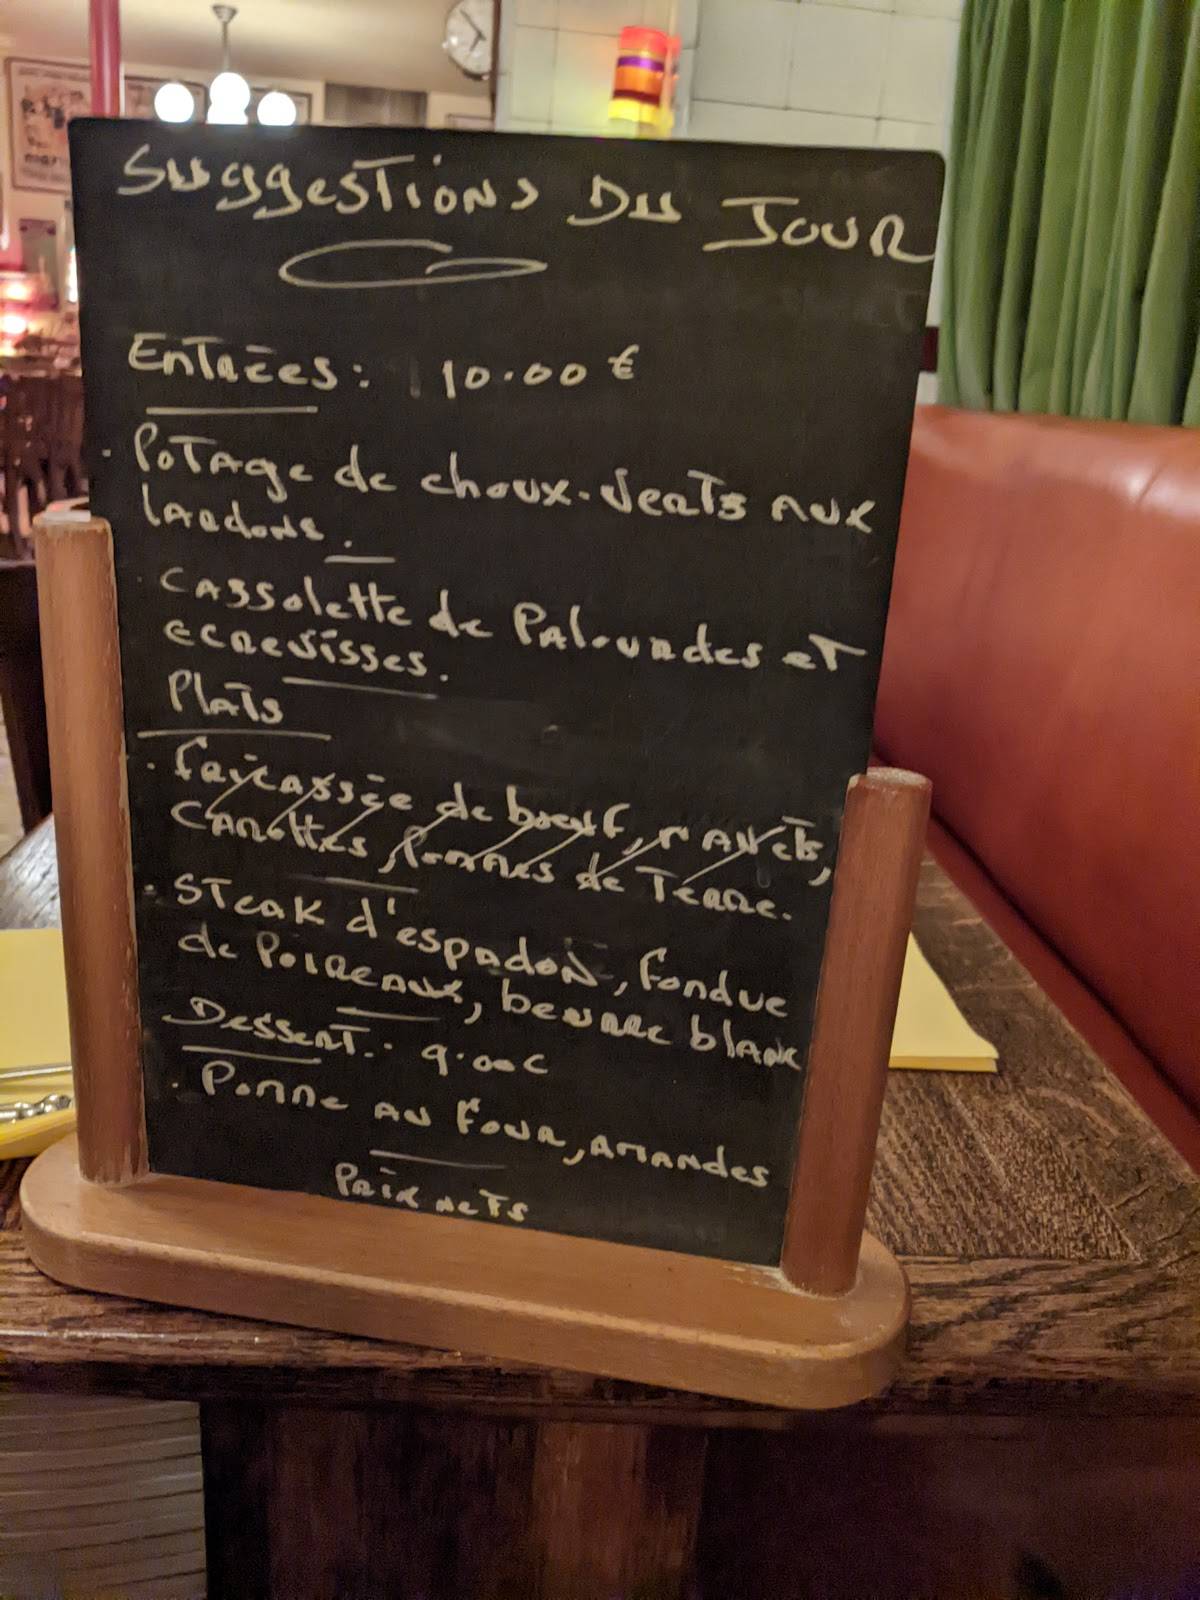 SuggesTions Du Jour
Entrées: 10.00 €
. Potage de choux-verts aux
lardons.
. Cassolette de Palourdes et
ecrevisses.
Plats
. fricassée de bœuf, navets,
Carottes, Pommes de Terre.
. Steak d'espadon, fondue
de Poireaux, beurre blanc
Dessert: 9.00€
. Pomme au four, amandes
Prix nets